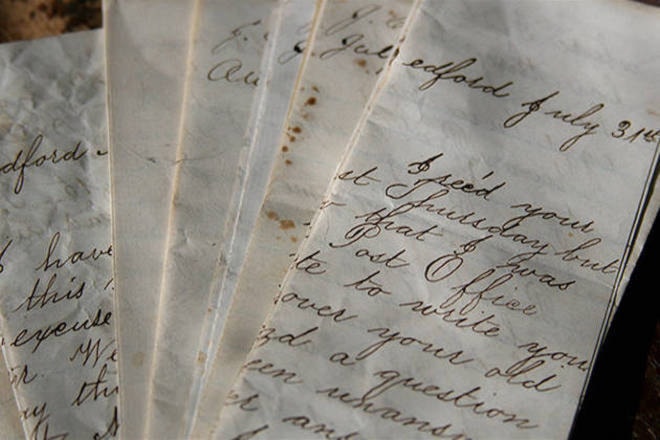 dford
I have
this
excuse
We
J.
Au
J. J
July
edford July 31st
I rec'd your
st Thursday but
that I was
Post Office
te to write you
over your old
d a question
een unansw